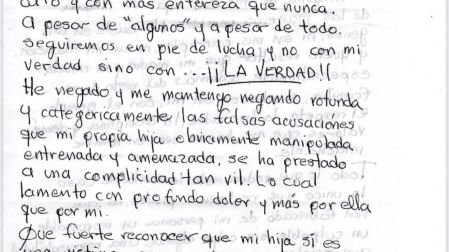 y con más entereza que nunca.
A pesar de "algunos" y a pesar de todo,
seguiremos en pie de lucha y no con mi
verdad sino con ...¡¡LA VERDAD!!
He negado y me mantengo negando rotunda
y categóricamente las falsas acusaciones
que mi propia hija obviamente manipulada
entrenada y amenazada, se ha prestado
a una complicidad tan vil. Lo cual
lamento con profundo dolor y más por ella
que por mí.
Que fuerte reconocer que mi hija si es